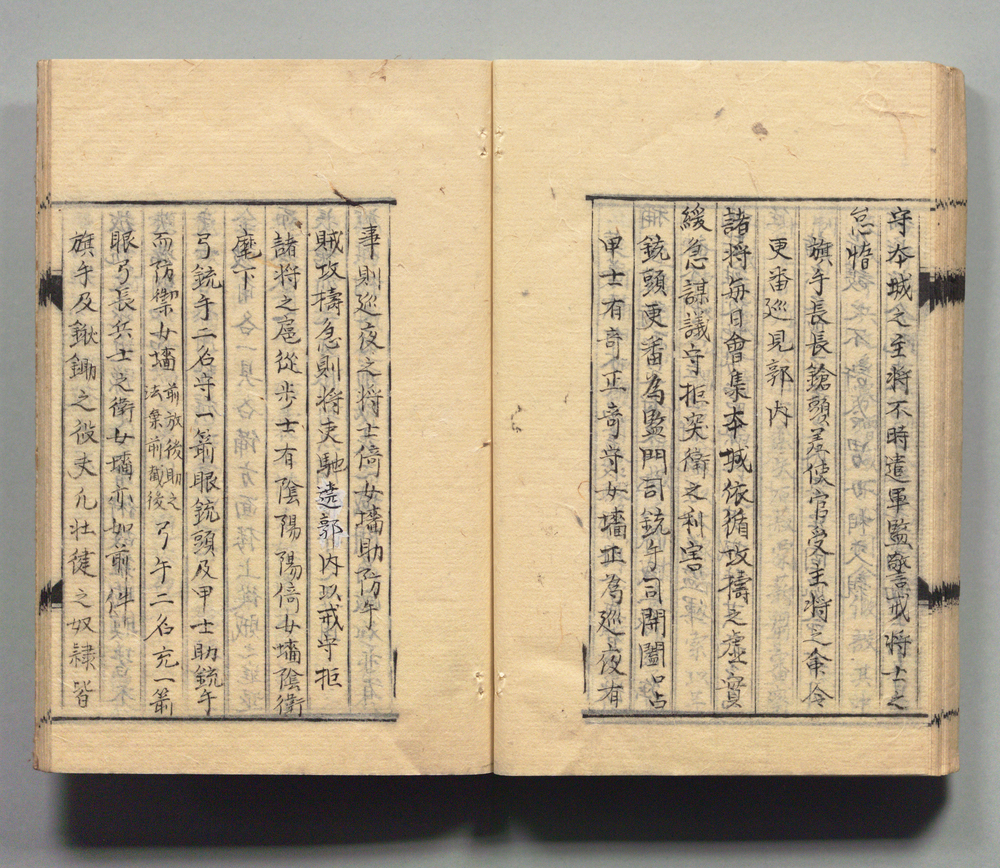 守本城之主将不時遣軍監警戒将士之
怠惰
旗手長長鎗頭差使官受主将之命令
更番巡見郭内
諸将每日會集本城依循攻擣之虚實
緩急謀議守拒突衛之利害
銃頭更番為監門司銃手司開闔占
甲士有奇正奇守女墻正為巡夜有
事則巡夜之将士倚女墻助防午
賊攻擣急則将吏馳造郭内以戒守拒
諸将之扈從步士有陰陽陽倚女墻陰衛
麾下
弓銃手二名守一箭眼銃頭及甲士助銃午
而防禦女墻前放後助之法棄前蔵後弓午二名充一箭
眼弓長兵士之衛女墻亦如前件
旗手及鍬鋤之役夫凡壮健之奴隸皆